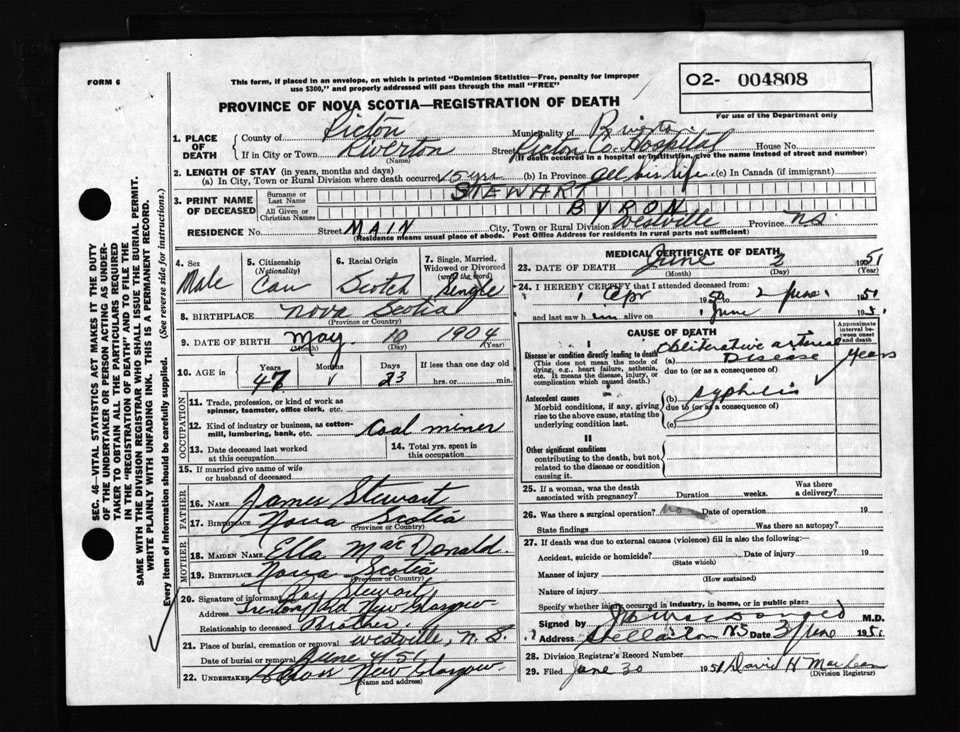 FORM 6
This form, if placed in an envelope, on which is printed "Dominion Statistics—Free, penalty for improper
use $300," and properly addressed will pass through the mail "FREE"
O2- 004808
For use of the Department only
PROVINCE OF NOVA SCOTIA—REGISTRATION OF DEATH
1. PLACE OF DEATH
County of Pictou Municipality of
If in City or Town Riverton Street Pictou Co. Hospital House No.
(Name) (If death occurred in a hospital or institution, give the name instead of street and number)
2. LENGTH OF STAY (in years, months and days)
(a) In City, Town or Rural Division where death occurred 15 yrs (b) In Province all his life (c) In Canada (if immigrant)
3. PRINT NAME OF DECEASED
Surname or Last Name STEWART
All Given or Christian Names BYRON
RESIDENCE No. Street MAIN City, Town or Rural Division Westville Province N.S
(Residence means usual place of abode. Post Office Address for residents in rural parts not sufficient)
4. Sex Male
5. Citizenship (Nationality) Can
6. Racial Origin Scotch
7. Single, Married, Widowed or Divorced (write the word) Single
8. BIRTHPLACE Nova Scotia
(Province or Country)
9. DATE OF BIRTH May 10 1904
(Month) (Day) (Year)
10. AGE in Years 47 Months Days 23 If less than one day
hrs. or min.
OCCUPATION
11. Trade, profession, or kind of work as
spinner, teamster, office clerk, etc.
12. Kind of industry or business, as cotton-
mill, lumbering, bank, etc. Coal miner
13. Date deceased last worked
at this occupation
14. Total yrs. spent in
this occupation
15. If married give name of wife
or husband of deceased
FATHER
16. NAME James Stewart
17. BIRTHPLACE Nova Scotia
(Province or Country)
MOTHER
18. MAIDEN NAME Ella Mac Donald
19. BIRTHPLACE Nova Scotia
(Province or Country)
20. Signature of informant Roy Stewart
Address Trenton New Glasgow
Relationship to deceased Brother
21. Place of burial, cremation or removal Westville, N. S.
Date of burial or removal June 4/51
22. UNDERTAKER New Glasgow
(Name and address)
MEDICAL CERTIFICATE OF DEATH
23. DATE OF DEATH June 2 1951
(Month) (Day) (Year)
24. I HEREBY CERTIFY that I attended deceased from
1 Apr 1950 to 2 June 1951
and last saw him alive on 1 June 1951
CAUSE OF DEATH
Approximate interval between onset and death
I
Disease or condition directly leading to death
(This does not mean the mode of
dying, e.g., heart failure, asthenia,
etc. It means the disease, injury, or
complication which caused death.)
Obliterative arterial
Disease years
due to (or as a consequence of)
Antecedent causes
Morbid conditions, if any, giving
rise to the above cause, stating the
underlying condition last.
(b) syphilis
due to (or as a consequence of)
(c)
II
Other significant conditions
contributing to the death, but not
related to the disease or condition
causing it.
25. If a woman, was the death
associated with pregnancy? Duration weeks. Was there
a delivery?
26. Was there a surgical operation? no Date of operation 19
State findings Was there an autopsy?
27. If death was due to external causes (violence) fill in also the following:—
Accident, suicide or homicide? Date of injury 19
(State which)
Manner of injury
(How sustained)
Nature of injury
Specify whether injury occurred in industry, in home, or in public place
Signed by M.D.
Address Stellarton NS Date 3 June 1951
28. Division Registrar's Record Number
29. Filed June 30 1951 David H MacLean
(Division Registrar)
SEC. 46—VITAL STATISTICS ACT MAKES IT THE DUTY
OF THE UNDERTAKER OR PERSON ACTING AS UNDER-
TAKER TO OBTAIN ALL THE PARTICULARS REQUIRED
IN THE "REGISTRATION OF DEATH" AND TO FILE THE
SAME WITH THE DIVISION REGISTRAR WHO SHALL ISSUE THE BURIAL PERMIT.
WRITE PLAINLY WITH UNFADING INK. THIS IS A PERMANENT RECORD.
Every item of information should be carefully supplied. (See reverse side for instructions.)